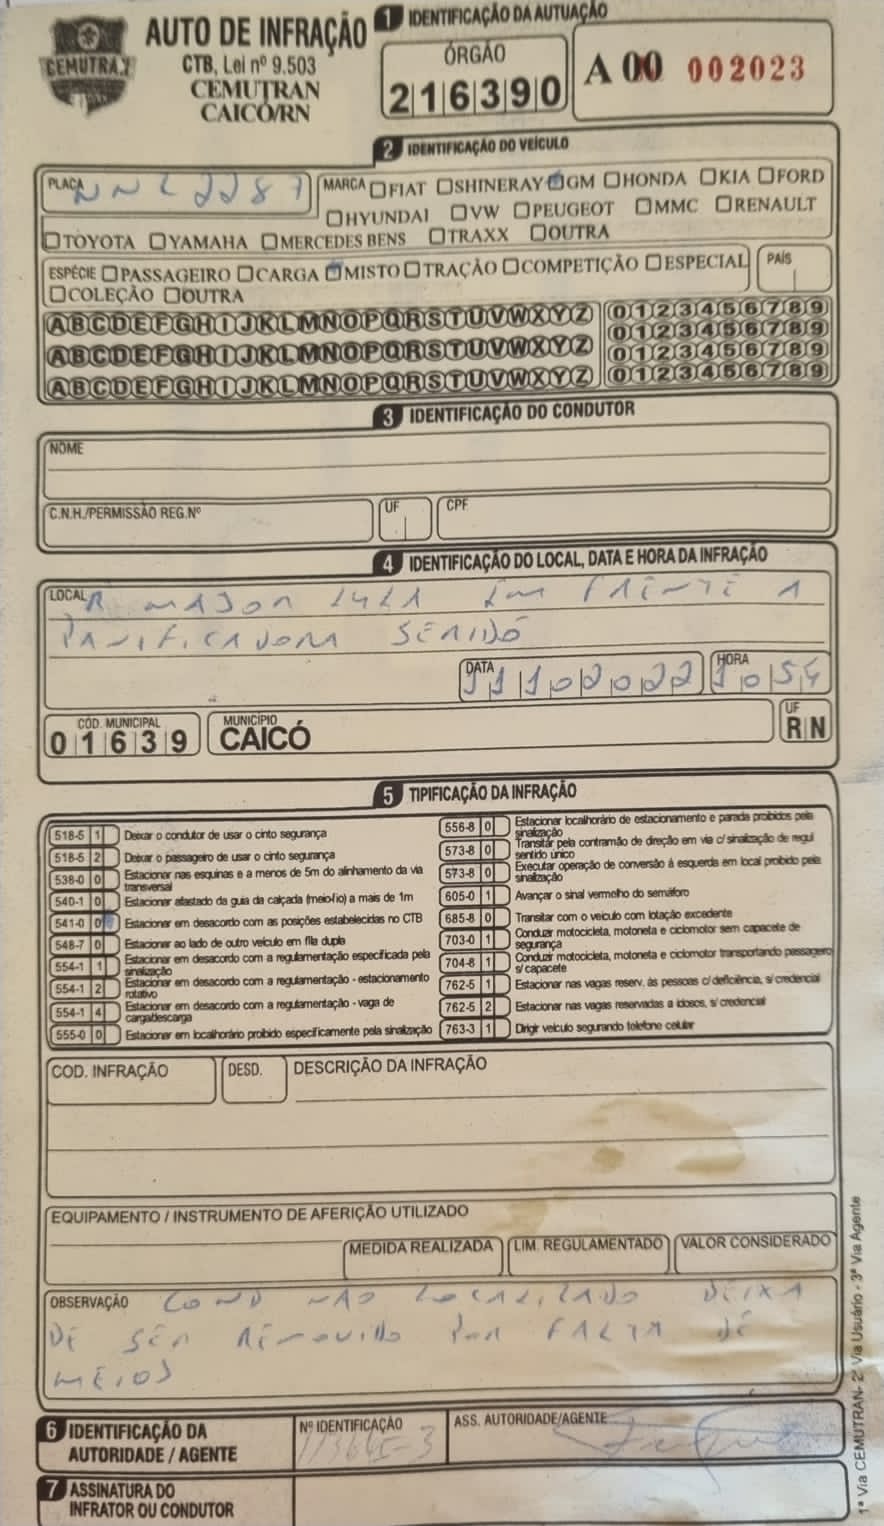 CEMUTRAN
AUTO DE INFRAÇÃO
CTB, Lei nº 9.503
CEMUTRAN
CAICÓ/RN
1 IDENTIFICAÇÃO DA AUTUAÇÃO
ÓRGÃO
216390
A 00 002023
2 IDENTIFICAÇÃO DO VEÍCULO
PLACA NNL2287
MARCA ☐FIAT ☐SHINERAY ☐GM ☐HONDA ☐KIA ☐FORD
☐HYUNDAI ☐VW ☐PEUGEOT ☐MMC ☐RENAULT
☐TOYOTA ☐YAMAHA ☐MERCEDES BENS ☐TRAXX ☐OUTRA
ESPÉCIE ☐PASSAGEIRO ☐CARGA ☐MISTO ☐TRAÇÃO ☐COMPETIÇÃO ☐ESPECIAL PAÍS
☐COLEÇÃO ☐OUTRA
ABCDEFGHIJKLMNOPQRSTUVWXYZ 0123456789
ABCDEFGHIJKLMNOPQRSTUVWXYZ 0123456789
0123456789
ABCDEFGHIJKLMNOPQRSTUVWXYZ 0123456789
3 IDENTIFICAÇÃO DO CONDUTOR
NOME
C.N.H./PERMISSÃO REG.Nº UF CPF
4 IDENTIFICAÇÃO DO LOCAL, DATA E HORA DA INFRAÇÃO
LOCAL R MAJOR LULA EM FRENTE A
PANIFICADORA SERIDÓ
DATA 11102022 HORA 1054
CÓD. MUNICIPAL 01639
MUNICÍPIO CAICÓ
UF RN
5 TIPIFICAÇÃO DA INFRAÇÃO
518-5 1 Deixar o condutor de usar o cinto segurança
518-5 2 Deixar o passageiro de usar o cinto segurança
538-0 0 Estacionar nas esquinas e a menos de 5m do alinhamento da via
transversal
540-1 0 Estacionar afastado da guia da calçada (meio-fio) a mais de 1m
541-0 0 Estacionar em desacordo com as posições estabelecidas no CTB
548-7 0 Estacionar ao lado de outro veículo em fila dupla
554-1 1 Estacionar em desacordo com a regulamentação especificada pela
sinalização
554-1 2 Estacionar em desacordo com a regulamentação - estacionamento
rotativo
554-1 4 Estacionar em desacordo com a regulamentação - vaga de
carga/descarga
555-0 0 Estacionar em local/horário proibido especificamente pela sinalização
556-8 0 Estacionar local/horário de estacionamento e parada proibidos pela
sinalização
573-8 0 Transitar pela contramão de direção em via c/ sinalização de regul
sentido único
573-8 0 Executar operação de conversão à esquerda em local proibido pela
sinalização
605-0 1 Avançar o sinal vermelho do semáforo
685-8 0 Transitar com o veículo com lotação excedente
703-0 1 Conduzir motocicleta, motoneta e ciclomotor sem capacete de
segurança
704-8 1 Conduzir motocicleta, motoneta e ciclomotor transportando passageiro
s/ capacete
762-5 1 Estacionar nas vagas reserv. às pessoas c/ deficiência, s/ credencial
762-5 2 Estacionar nas vagas reservadas a idosos, s/ credencial
763-3 1 Dirigir veículo segurando telefone celular
COD. INFRAÇÃO DESD. DESCRIÇÃO DA INFRAÇÃO
EQUIPAMENTO / INSTRUMENTO DE AFERIÇÃO UTILIZADO
MEDIDA REALIZADA LIM. REGULAMENTADO VALOR CONSIDERADO
OBSERVAÇÃO COND NÃO LOCALIZADO DEIXA
DE SER REMOVIDO POR FALTA DE
MEIOS
6 IDENTIFICAÇÃO DA
AUTORIDADE / AGENTE
Nº IDENTIFICAÇÃO
ASS. AUTORIDADE/AGENTE
7 ASSINATURA DO
INFRATOR OU CONDUTOR
1ª Via CEMUTRAN- 2ª Via Usuário - 3ª Via Agente